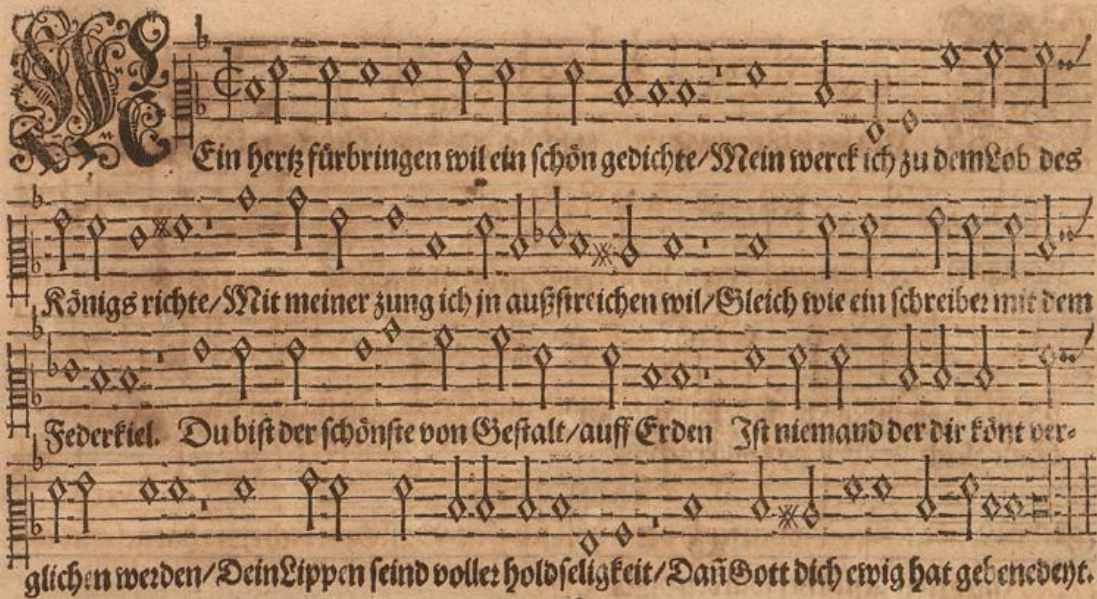 MEin hertz fürbringen wil ein schön gedichte/Mein werck ich zu dem Lob des
Königs richte/Mit meiner zung ich jn außstreichen wil/Gleich wie ein schreiber mit dem
Federkiel. Du bist der schönste von Gestalt/auff Erden Ist niemand der dir könt ver-
glichen werden/Dein Lippen seind voller holdseligkeit/Dañ Gott dich ewig hat gebenedeyt.